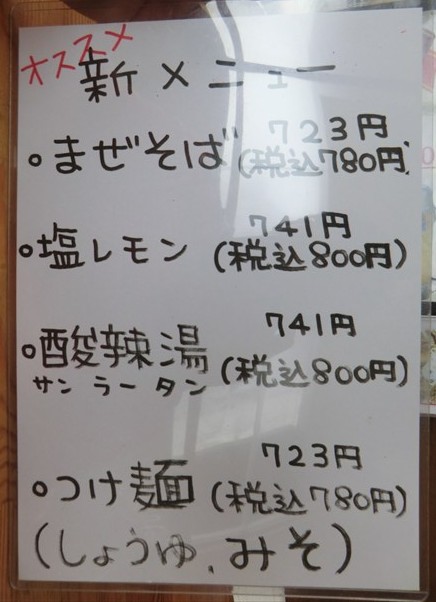 オススメ
新メニュー
まぜそば 723円
(税込780円)
塩レモン 741円
(税込800円)
酸辣湯 741円
サンラータン (税込800円)
つけ麺 723円
(税込780円)
(しょうゆ、みそ)